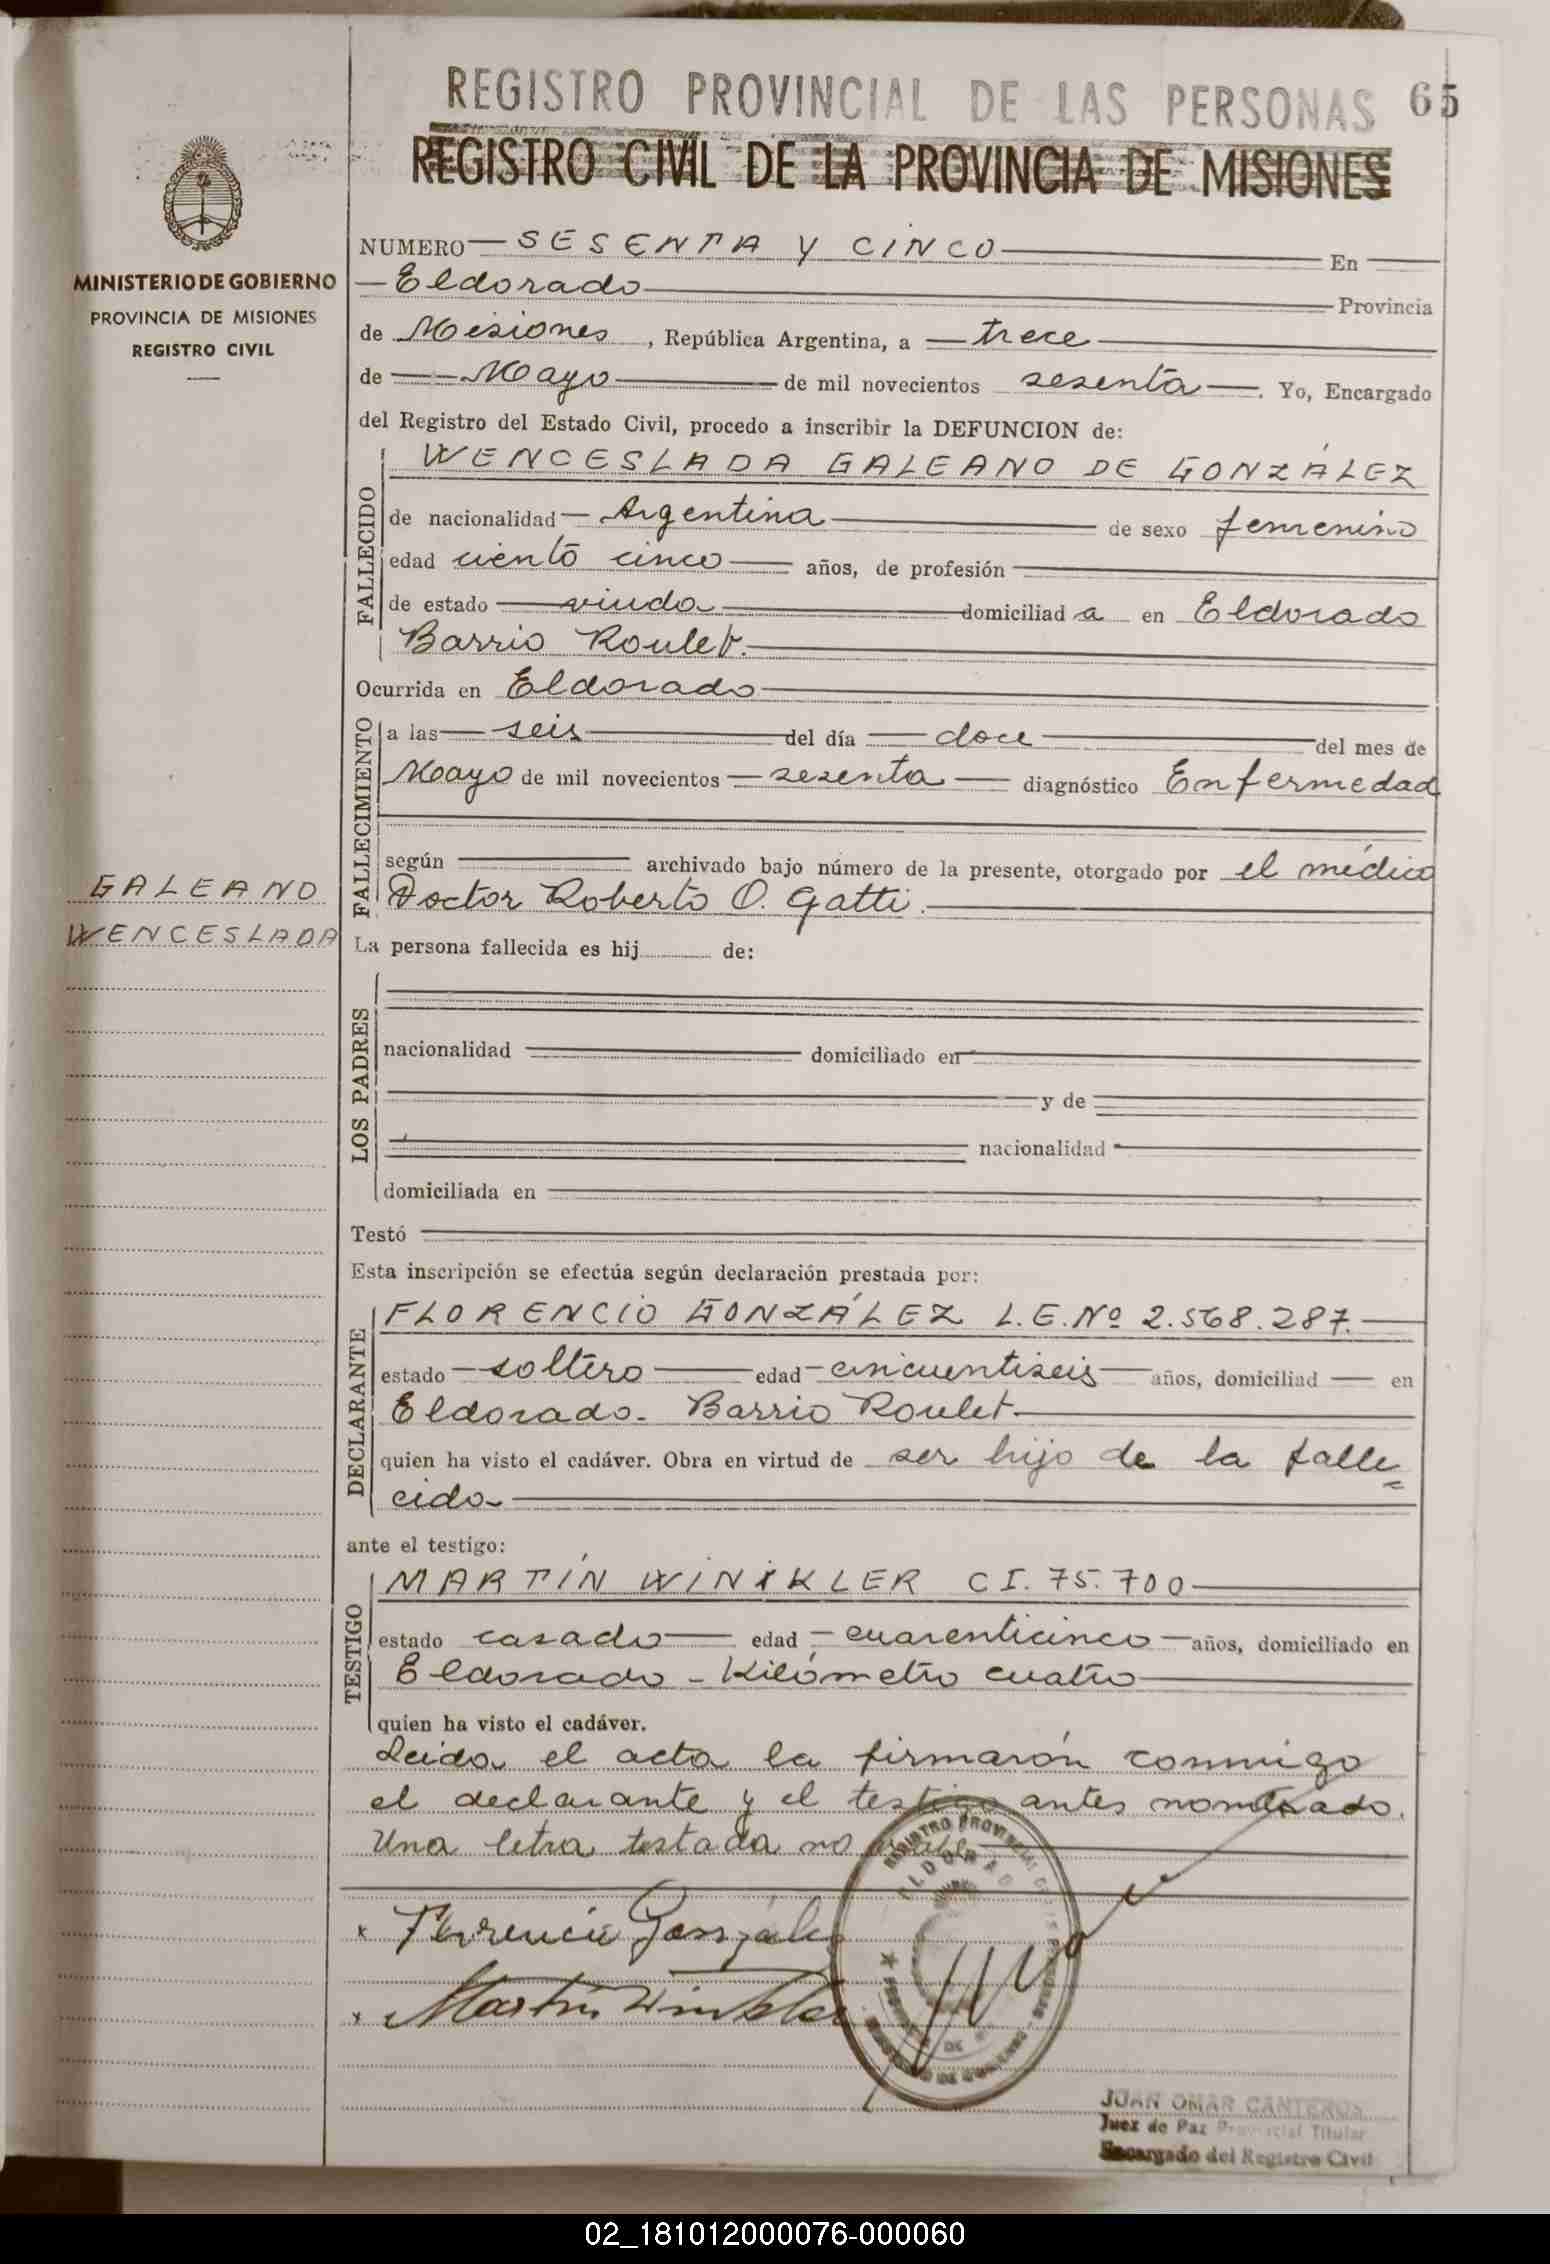 REGISTRO PROVINCIAL DE LAS PERSONAS 65
REGISTRO CIVIL DE LA PROVINCIA DE MISIONES
MINISTERIO DE GOBIERNO
PROVINCIA DE MISIONES
REGISTRO CIVIL
NUMERO SESENTA Y CINCO En
Eldorado Provincia
de Misiones, República Argentina, a trece
de Mayo de mil novecientos sesenta. Yo, Encargado
del Registro del Estado Civil, procedo a inscribir la DEFUNCION de:
FALLECIDO
WENCESLADA GALEANO DE GONZÁLEZ
de nacionalidad Argentina de sexo femenino
edad ciento cinco años, de profesión
de estado viuda domiciliad a en Eldorado
Barrio Roulet.
Ocurrida en Eldorado
FALLECIMIENTO
a las seis del día doce del mes de
Mayo de mil novecientos sesenta diagnóstico Enfermedad
según archivado bajo número de la presente, otorgado por el médico
Doctor Roberto O. Gatti.
GALEANO
WENCESLADA
La persona fallecida es hij de:
LOS PADRES
nacionalidad domiciliado en
y de
nacionalidad
domiciliada en
Testó
Esta inscripción se efectúa según declaración prestada por:
DECLARANTE
FLORENCIO GONZÁLEZ L.E.Nº 2.568.287.
estado soltero edad cincuentiseis años, domiciliad en
Eldorado. Barrio Roulet.
quien ha visto el cadáver. Obra en virtud de ser hijo de la falle=
cida
ante el testigo:
TESTIGO
MARTÍN WINKLER C I. 75.700
estado casado edad cuarenticinco años, domiciliado en
Eldorado - Kilómetro cuatro
quien ha visto el cadáver.
Leida el acta la firmarón conmigo
el declarante y el testigo antes nombrado.
Una letra testada no
x Florencio González
x Martín Winkler
REGISTRO PROVINCIAL DE LAS PERSONAS
ELDORADO
MINISTERIO DE GOBIERNO
JUAN OMAR CANTEROS
Juez de Paz Provincial Titular
Encargado del Registro Civil
02_181012000076-000060